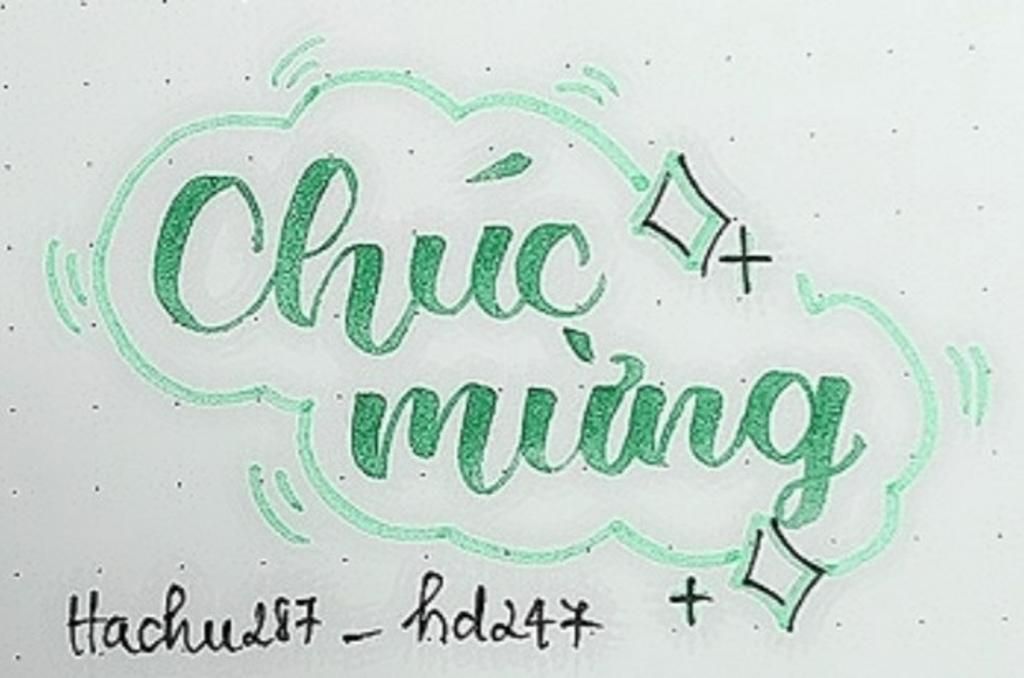 Chúc
mừng
Hachu287 - hd247